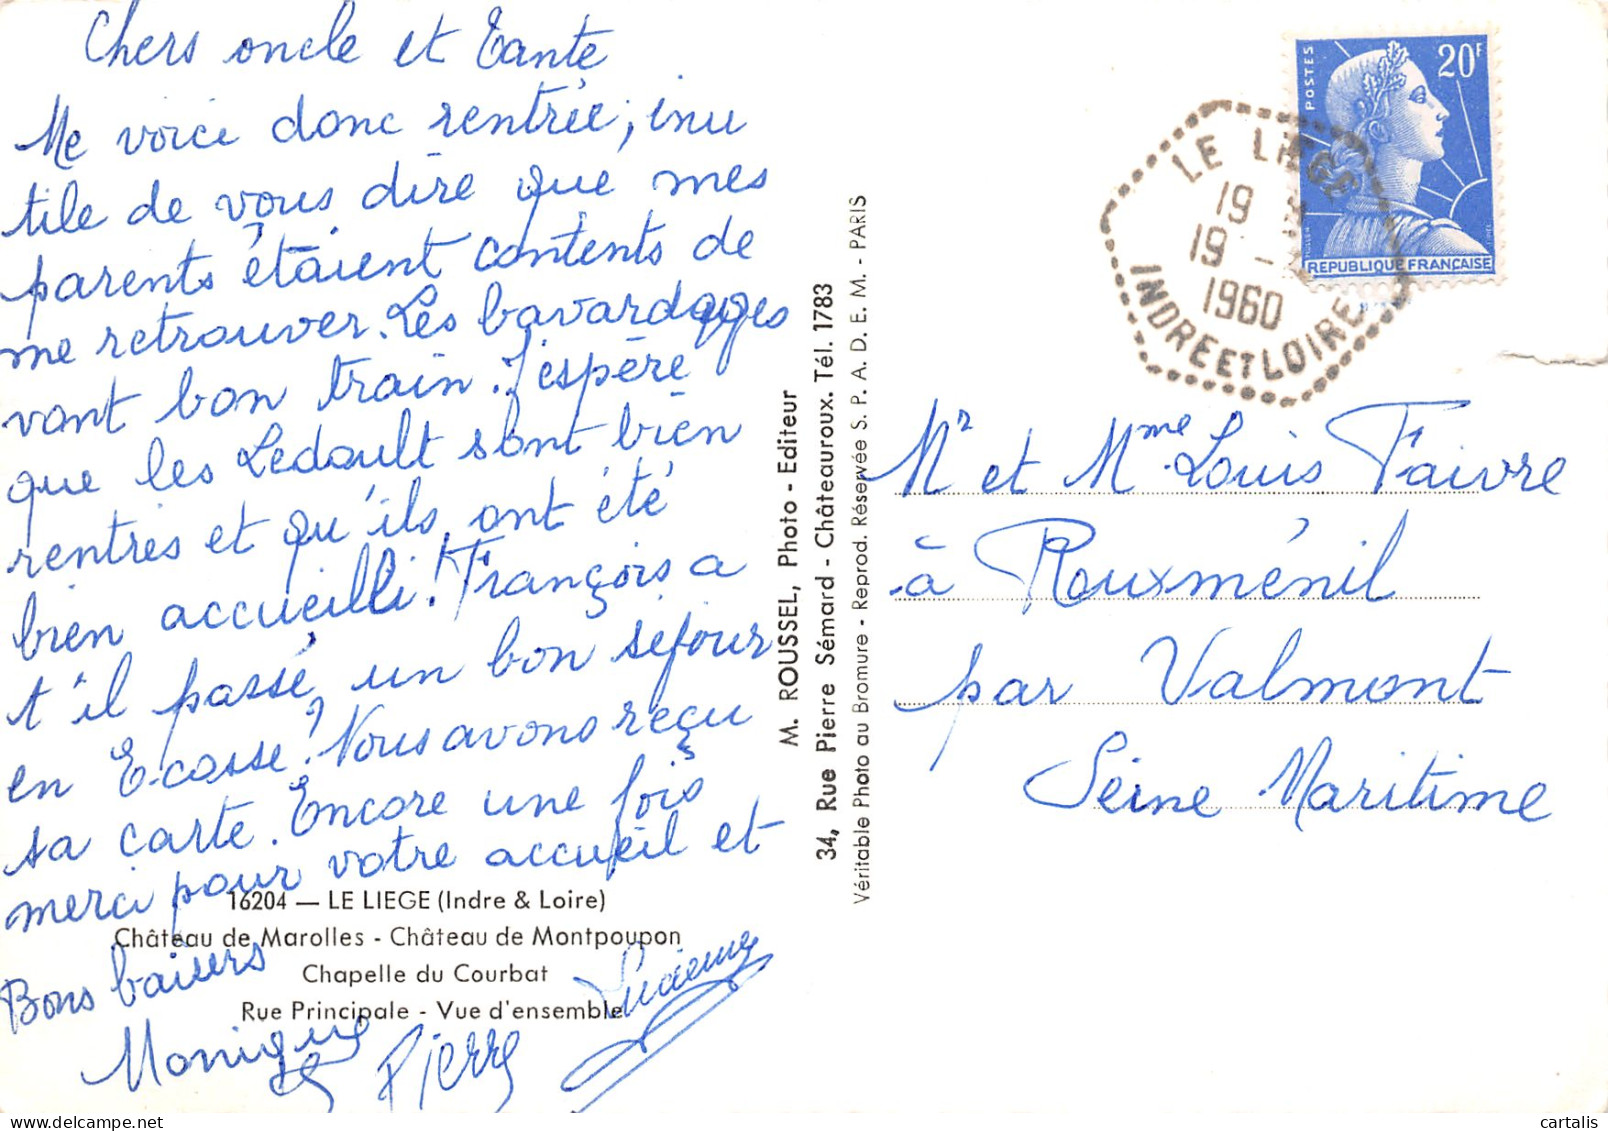 Chers oncle et Tante
Me voici donc rentrée, inu
tile de vous dire que mes
parents étaient contents de
me retrouver. Les bavardages
vont bon train. J'espère
que les Ledoult sont bien
rentrés et qu'ils ont été
bien accueilli. François a
t'il passé un bon séjour
en Ecosse? Nous avons reçu
sa carte. Encore une fois
merci pour votre accueil et
16204 — LE LIEGE (Indre & Loire)
Château de Marolles - Château de Montpoupon
Chapelle du Courbat
Rue Principale - Vue d'ensemble
Bons baisers
Monique
Pierre
M. ROUSSEL, Photo - Editeur
34, Rue Pierre Sémard - Châteauroux. Tél. 1783
Véritable Photo au Bromure - Reprod. Réservée S. P. A. D. E. M. - PARIS
POSTES
20F
REPUBLIQUE FRANÇAISE
LE LIEGE
19
19 -
1960
INDRE ET LOIRE
Mr et Mme Louis Faivre
à Rouxménil
par Valmont
Seine Maritime
cartalis